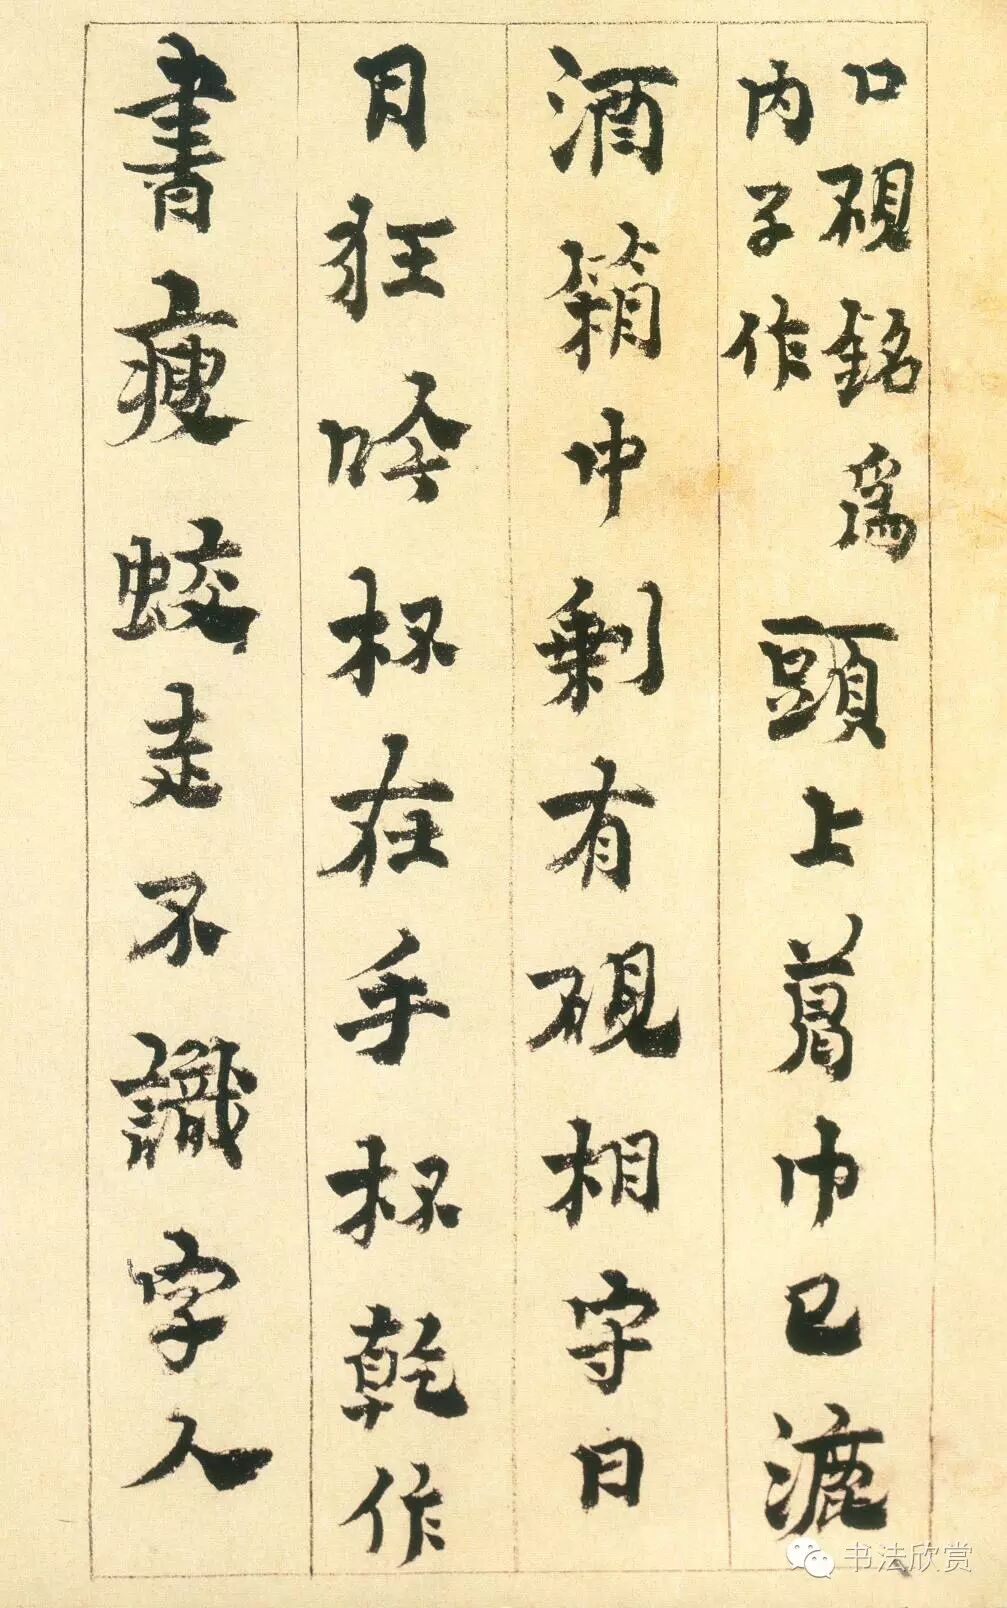 口硯銘為
内子作
頭上葛巾已漉
酒箱中剩有硯相守日
月狂吟杯在手杯乾作
書瘦蛟走不識字人
书法欣赏